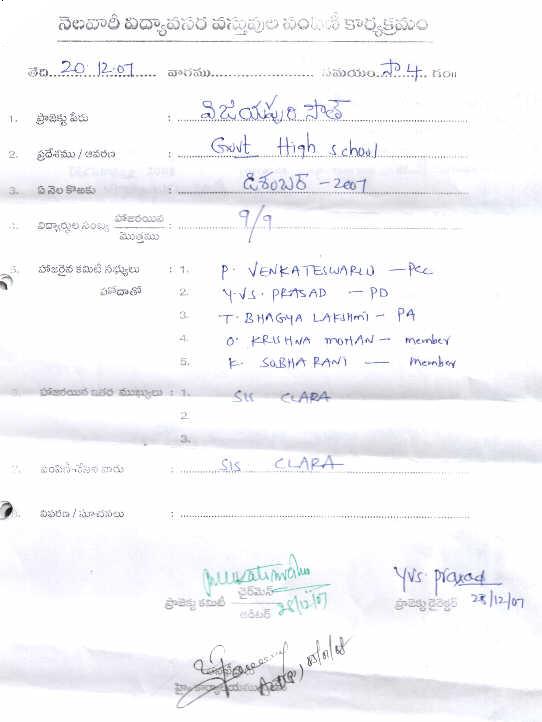 నెలవారీ విద్యావసర వస్తువుల పంపిణీ కార్యక్రమం
తేది 20.12.07 వారము సమయం సా 4 గం॥
1. ప్రాజెక్టు పేరు : విజయపురి సౌత్
2. ప్రదేశము / ఆవరణ : Govt High school
3. ఏ నెల కొఱకు : డిశంబర్ - 2007
4. విద్యార్థుల సంఖ్య హాజరయిన / మొత్తము : 9/9
5. హాజరైన కమిటీ సభ్యులు : 1. P. VENKATESWARLU - PCC
హోదాతో 2. Y.VS. PRASAD - PD
3. T. BHAGYA LAKSHMI - PA
4. O. KRISHNA MOHAN - member
5. K. SOBHA RANI - member
6. హాజరయిన ఇతర ముఖ్యులు : 1. SIS CLARA
2.
3.
7. పంపిణీ చేసిన వారు : SIS CLARA
8. వివరణ / సూచనలు :
yvs. prasad
ప్రాజెక్టు కమిటీ ఛైర్మెన్ 28/12/07 ప్రాజెక్టు డైరెక్టర్ 28/12/07
ఆడిటర్